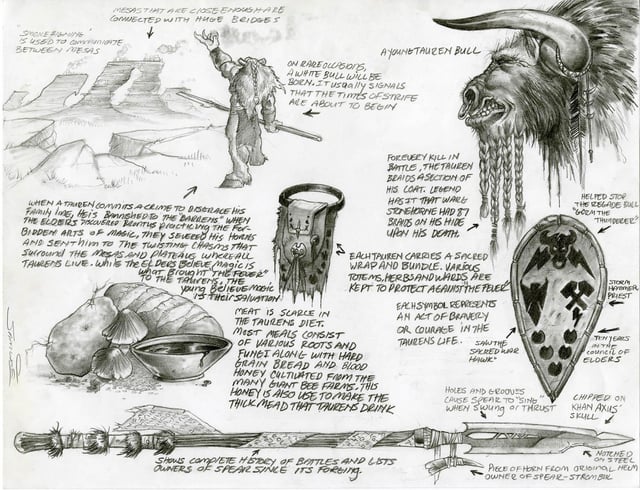 MESAS THAT ARE CLOSE ENOUGH ARE
CONNECTED WITH HUGE BRIDGES
"SMOKE SIGNING"
IS USED TO COMMUNICATE
BETWEEN MESAS
ON RARE OCCASIONS,
A WHITE BULL WILL BE
BORN. IT USUALLY SIGNALS
THAT THE TIMES OF STRIFE
ARE ABOUT TO BEGIN
A YOUNG TAUREN BULL
FOR EVERY KILL IN
BATTLE, THE TAUREN
BRAIDS A SECTION OF
HIS COAT. LEGEND
HAS IT THAT WARG
STONEHORNE HAD 87
BRAIDS ON HIS HIDE
UPON HIS DEATH.
WHEN A TAUREN COMMITS A CRIME TO DISGRACE HIS
FAMILY LINE, HE IS BANNISHED TO THE BARRENS. WHEN
THE ELDERS DISCOVERED BRONTUS PRACTICING THE FOR-
BIDDEN ARTS OF MAGIC, THEY SEVERED HIS HORNS
AND SENT HIM TO THE TWISTING CHASMS THAT
SURROUND THE MESAS AND PLATEAUS WHERE ALL
TAURENS LIVE. WHILE THE ELDERS BELIEVE MAGIC IS
WHAT BROUGHT "THE FEVER"
TO THE TAURENS, THE
YOUNG BELIEVE MAGIC
IS THEIR SALVATION
EACH TAUREN CARRIES A SACRED
WRAP AND BUNDLE. VARIOUS
TOTEMS, HERBS AND WARDS ARE
KEPT TO PROTECT AGAINST THE FEVER
HELPED STOP
"THE REGADE BULL"
"GORM THE
THUNDERER"
EACH SYMBOL REPRESENTS
AN ACT OF BRAVERY
OR COURAGE IN THE
TAURENS LIFE.
STORM
HAMMER
PRIEST
SAW THE
SACRED WAR
HAWK
TEN YEARS
IN THE
COUNCIL OF
ELDERS
MEAT IS SCARCE IN
THE TAURENS DIET.
MOST MEALS CONSIST
OF VARIOUS ROOTS AND
FUNGI ALONG WITH HARD
GRAIN BREAD AND BLOOD
HONEY CULTIVATED FROM THE
MANY GIANT BEE FARMS. THIS
HONEY IS ALSO USE TO MAKE THE
THICK MEAD THAT TAURENS DRINK
HOLES AND GROOVES
CAUSE SPEAR TO "SING"
WHEN SWUNG OR THRUST
CHIPPED ON
KHAN AXIIS'
SKULL
SHOWS COMPLETE HISTORY OF BATTLES AND LISTS
OWNERS OF SPEAR SINCE ITS FORGING.
NOTCHED
ON STEEL
HELM
PIECE OF HORN FROM ORIGINAL
OWNER OF SPEAR - STROMBUL